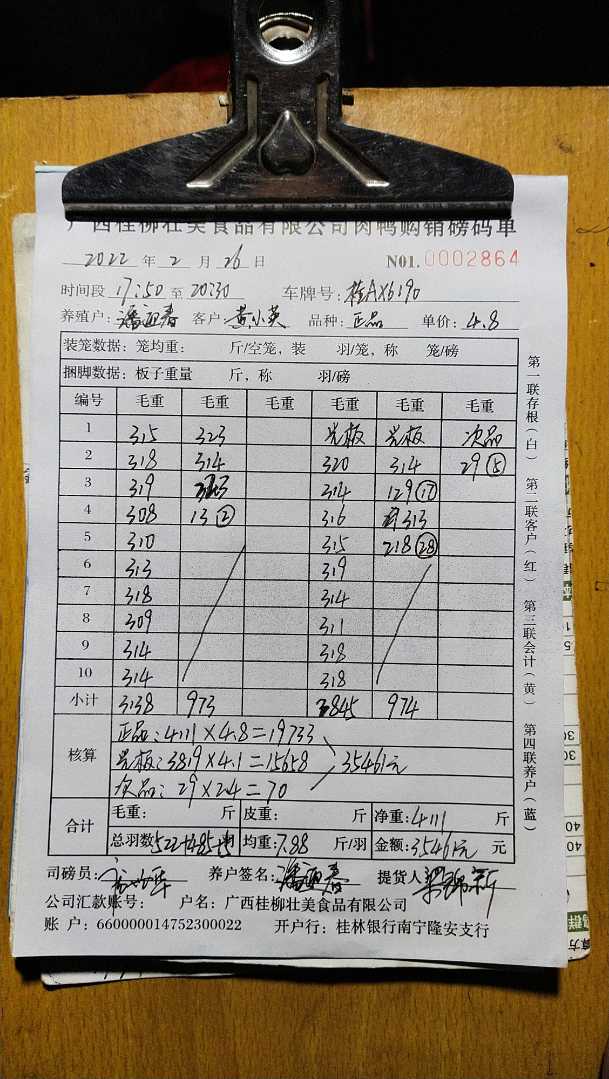 广西桂柳壮美食品有限公司肉鸭购销磅码单
2022 年 2 月 26 日 N01. 0002864
时间段 17:50 至 20:30 车牌号: 桂AX5190
养殖户: 潘迎春 客户: 黄小英 品种: 正品 单价: 4.8
装笼数据: 笼均重: 斤/空笼, 装 羽/笼, 称 笼/磅
捆脚数据: 板子重量 斤, 称 羽/磅
编号 毛重 毛重 毛重 毛重 毛重 毛重
1 315 323 光板 光板 次品
2 318 314 320 314 29 ⑤
3 319 314 129 ⑰
4 308 13 ② 316 313
5 310 315 218 ㉘
6 313 319
7 318 314
8 309 311
9 314 318
10 314 318
小计 3138 973 2845 974
核算 正品: 4111×4.8=19733
光板: 3819×4.1=15658 35461元
次品: 29×2.4=70
合计 毛重: 斤 皮重: 斤 净重: 4111 斤
总羽数 522+485+5 均重: 7.88 斤/羽 金额: 35461元 元
司磅员: 养户签名: 潘迎春 提货人
公司汇款账号: 户名: 广西桂柳壮美食品有限公司
账 户: 660000014752300022 开户行: 桂林银行南宁隆安支行
第一联存根(白) 第二联客户(红) 第三联会计(黄) 第四联养户(蓝)